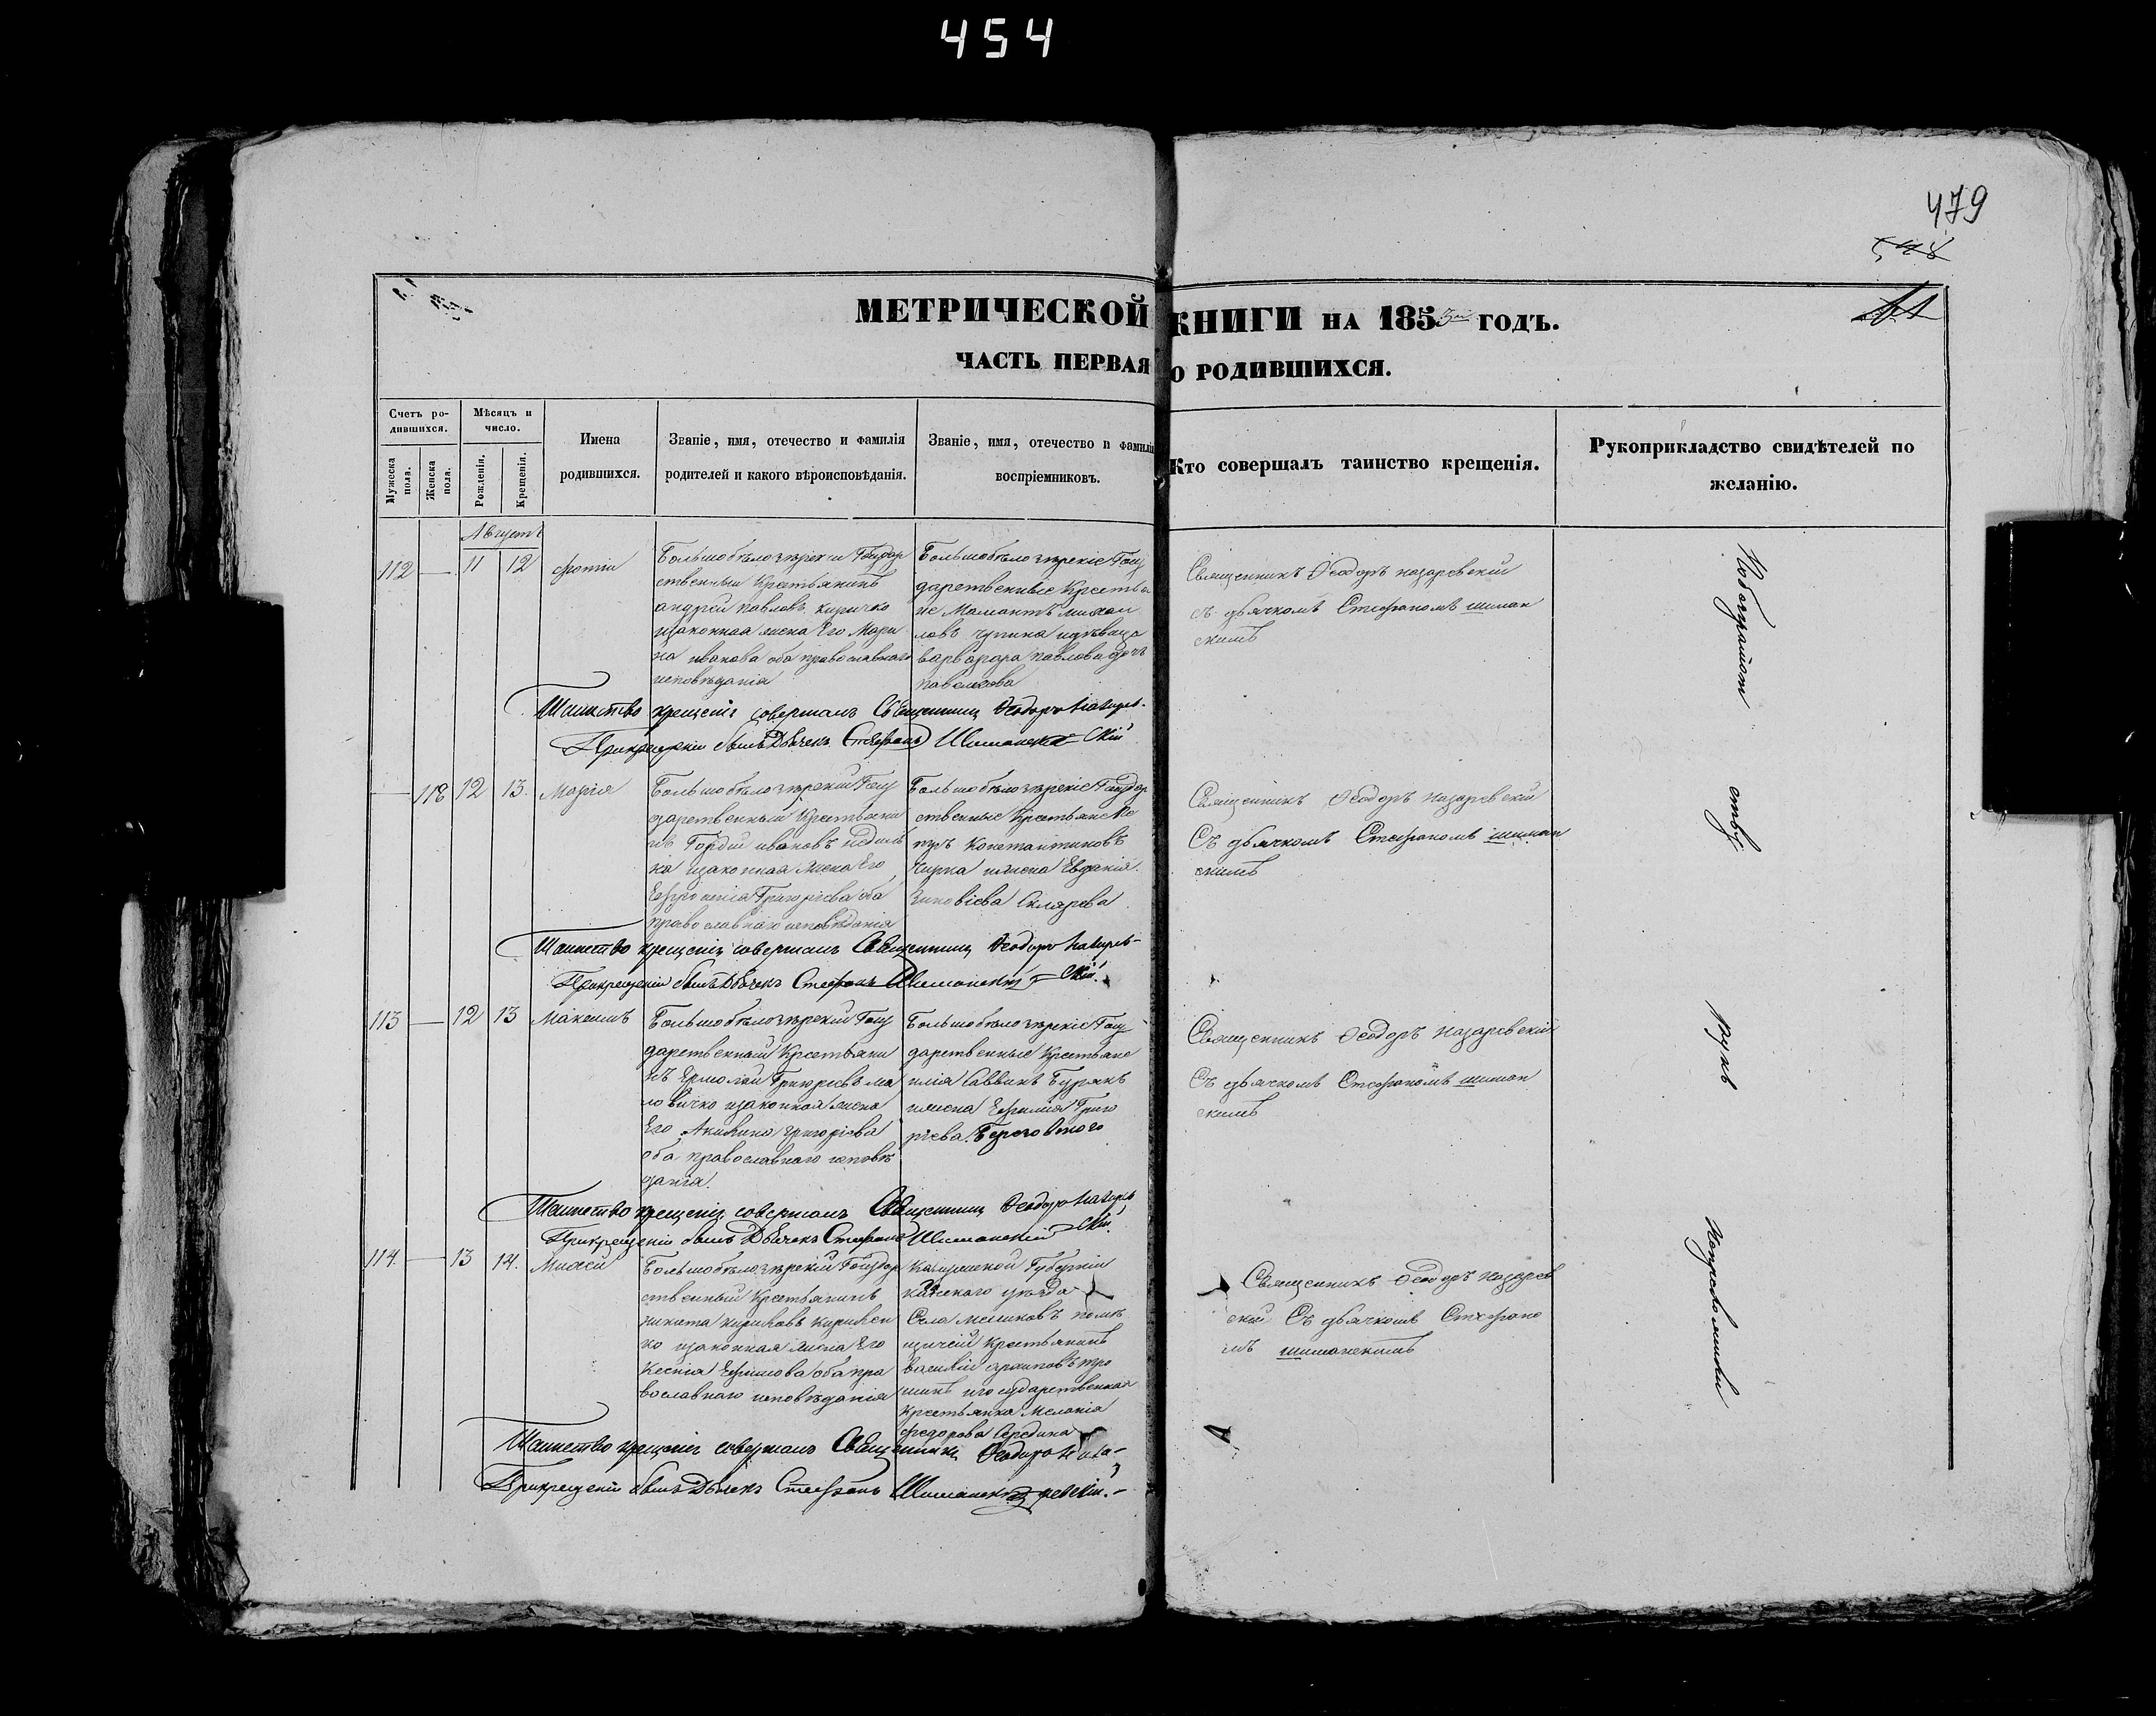 454
479
МЕТРИЧЕСКОЙ КНИГИ НА 1853й ГОДЪ.
ЧАСТЬ ПЕРВАЯ О РОДИВШИХСЯ.
Счетъ ро-
дившихся.
Мужеска пола.
Женска пола.
Мѣсяцъ и
число.
Рожденія.
Крещенія.
Имена
родившихся.
Званіе, имя, отечество и фамилія
родителей и какого вѣроисповѣданія.
Званіе, имя, отечество и фамилія
воспріемниковъ.
Кто совершалъ таинство крещенія.
Рукоприкладство свидѣтелей по
желанію.
Августъ
112 — 11 12 Фотій
Большобѣлозѣрскій Государ
ственный Крестьянинъ
андрей павловъ Киричко
изаконная жена Его Мари
на иванова оба православнаго
исповѣданія
Большобѣлозѣрскіе Госу
дарственные Крестья
не Мамантъ михаи
ловъ
варвара павлова дочь
Священникъ Ѳеодоръ назаревскій
съ дьячкомъ Стефаномъ шиман
скимъ
Таинство крещенія совершалъ Священникъ Ѳеодоръ Назарев-
При крещеніи былъ Дьячекъ Стефанъ Шиманскій скій
— 118 12 13. Марія
Большобѣлозѣрскій Госу
дарственный Крестьяни
нъ Гордій ивановъ
изаконная жена Его
Ефросинія Григоріева оба
православнаго исповѣданія
Большобѣлозѣрскіе Государ
ственные Крестьяне Пе
тръ Константиновъ
Чирка ижена Евдокія
Зиновіева Склярова
Священникъ Ѳеодоръ назаревскій
Съ дьячкомъ Стефаномъ шиман
скимъ
Таинство крещенія совершалъ Священникъ Ѳеодоръ Назарев-
При крещеніи былъ Дьячекъ Стефанъ Шиманскій скій.
113 — 12 13 Максимъ
Большобѣлозѣрскій Госу
дарственный Крестьяни
нъ Ермолай Григорьевъ Ма
ловичко изаконная жена
Его Акилина григоріева
оба православнаго исповѣ
данія.
Большобѣлозѣрскіе Госу
дарственные Крестьяне
илія Саввинъ Бурякъ
ижена Евфимія Григо
ріева Береговаго
Священникъ Ѳеодоръ назаревскій
Съ дьячкомъ Стефаномъ шиман
скимъ
Таинство крещенія совершалъ Священникъ Ѳеодоръ Назарев
При крещеніи былъ Дьячекъ Стефанъ Шиманскій скій.
114. — 13 14.
Большобѣлозѣрскій Государ
ственный Крестьянинъ
никита кириловъ Кирилен
ко изаконная жена Его
Ксенія Ефимова оба пра
вославнаго исповѣданія
Калужской Губерніи
уѣзда
Села помѣ
щичій Крестьянинъ
василій архиповъ тро
шинъ игосударственная
Крестьянка Меланія
федорова Середина
Священникъ Ѳеодоръ назарев
скій Съ дьячкомъ Стефано
мъ шиманскимъ
Таинство крещенія совершалъ Священникъ Ѳеодоръ Наза-
При крещеніи былъ Дьячекъ Стефанъ Шиманскій ревскій.-